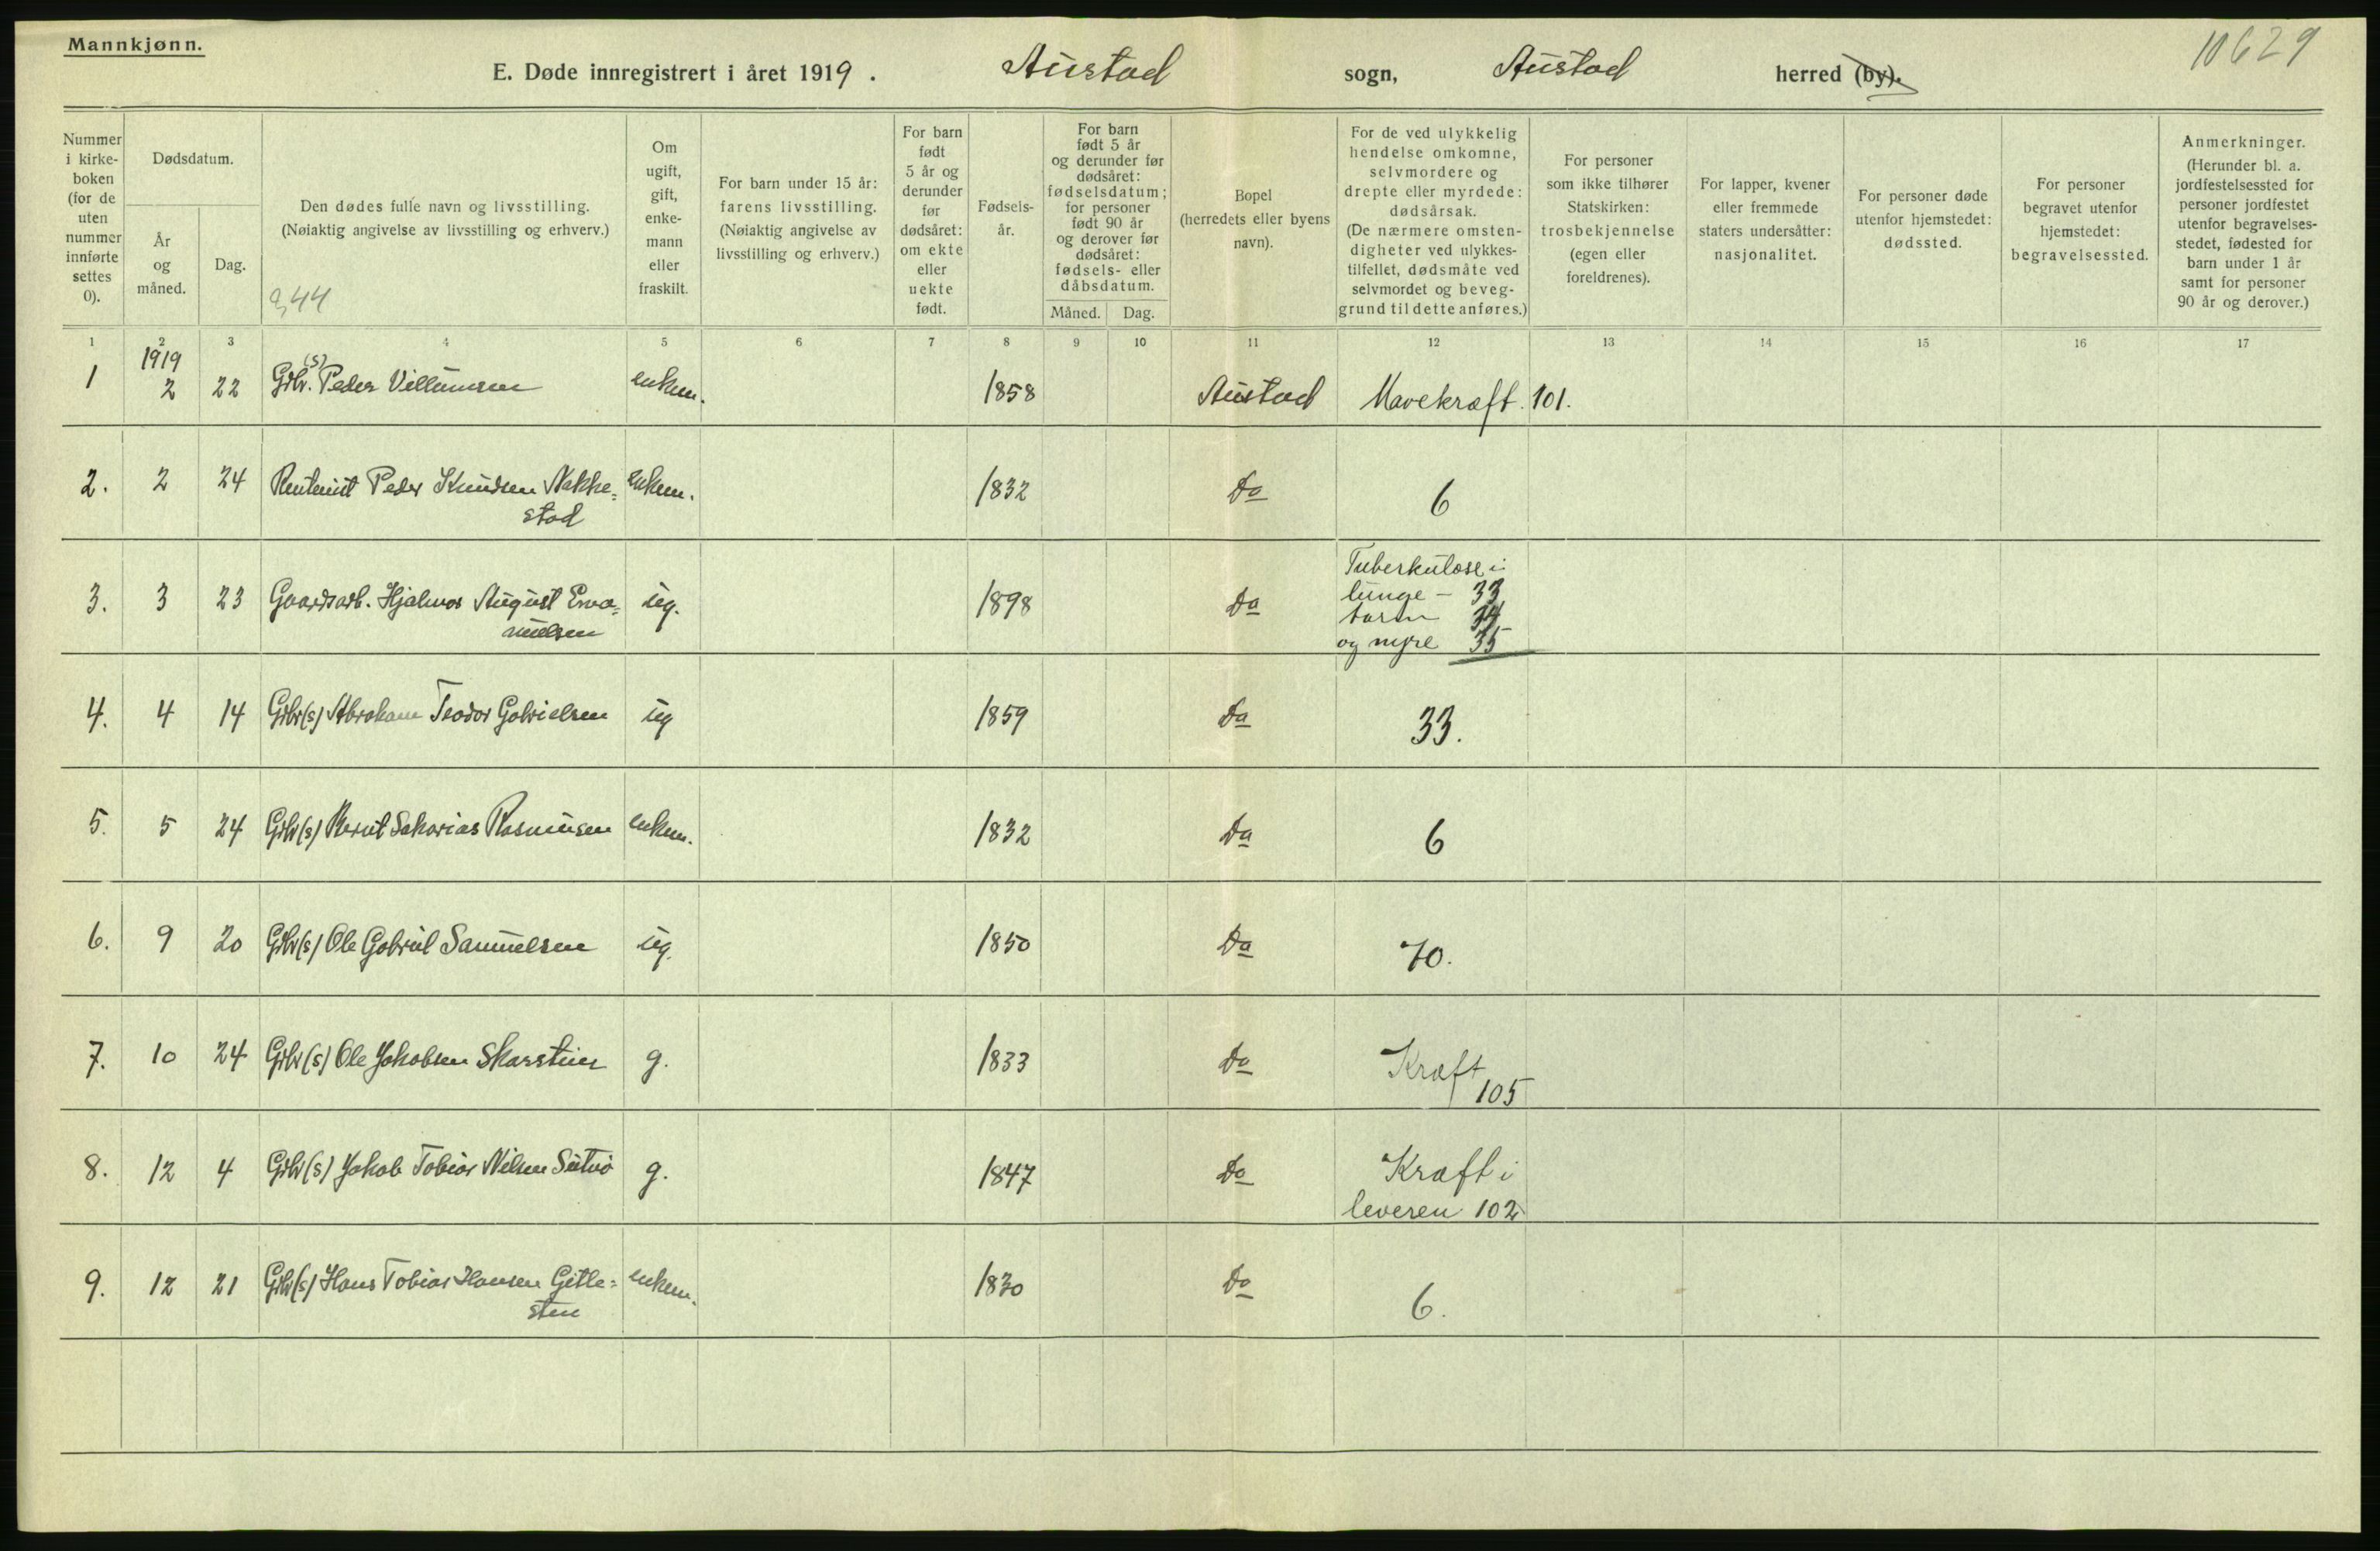 Mannkjønn.
10629
E. Døde innregistrert i året 1919. Austad sogn, Austad herred (by).
Nummer i kirkeboken (for de uten nummer innførte settes 0).
Dødsdatum.
År og måned.
Dag.
Den dødes fulle navn og livsstilling.
(Nøiaktig angivelse av livsstilling og erhverv.)
344
Om ugift, gift, enkemann eller fraskilt.
For barn under 15 år: farens livsstilling. (Nøiaktig angivelse av livsstilling og erhverv.)
For barn født 5 år og derunder før dødsåret: om ekte eller uekte født.
Fødselsår.
For barn født 5 år og derunder før dødsåret: fødselsdatum; for personer født 90 år og derover før dødsåret: fødsels- eller dåbsdatum.
Måned. Dag.
Bopel (herredets eller byens navn).
For de ved ulykkelig hendelse omkomne, selvmordere og drepte eller myrdede: dødsårsak. (De nærmere omstendigheter ved ulykkestilfellet, dødsmåte ved selvmordet og beveggrund til dette anføres.)
For personer som ikke tilhører Statskirken: trosbekjennelse (egen eller foreldrenes).
For lapper, kvener eller fremmede staters undersåtter: nasjonalitet.
For personer døde utenfor hjemstedet: dødssted.
For personer begravet utenfor hjemstedet: begravelsessted.
Anmerkninger. (Herunder bl. a. jordfestelsessted for personer jordfestet utenfor begravelsesstedet, fødested for barn under 1 år samt for personer 90 år og derover.)
1 2 3 4 5 6 7 8 9 10 11 12 13 14 15 16 17
1919
1 2 22 Gdbr. (s) Peder Villumsen enkem. 1858 Austad Mavekræft. 101.
2. 2 24 Rentenist Peder Knudsen Nakke= enkem. 1832 Do 6
stad
3. 3 23 Gaardsarb. Hjalmar August Ema= ug. 1898 Do Tuberkulose i
nuelsen lunge - 33
tarm 34
og nyre 35
4. 4 14 Gdbr(s) Abraham Teodor Gabrielsen ug 1859 Do 33.
5. 5 24 Gdbr(s) Bernt Sakarias Rasmusen enkem. 1832 Do 6
6. 9 20 Gdbr(s) Ole Gabriel Samuelsen ug. 1850 Do 70.
7. 10 24 Gdbr(s) Ole Jakobsen Skarstein g. 1833 Do Kræft
105
8. 12 4 Gdbr(s) Jakob Tobias Nilsen g. 1847 Do Kræft i
leveren 102
9. 12 21 Gdbr(s) Hans Tobias Hansen Gitle= enkem. 1830 Do 6.
sten